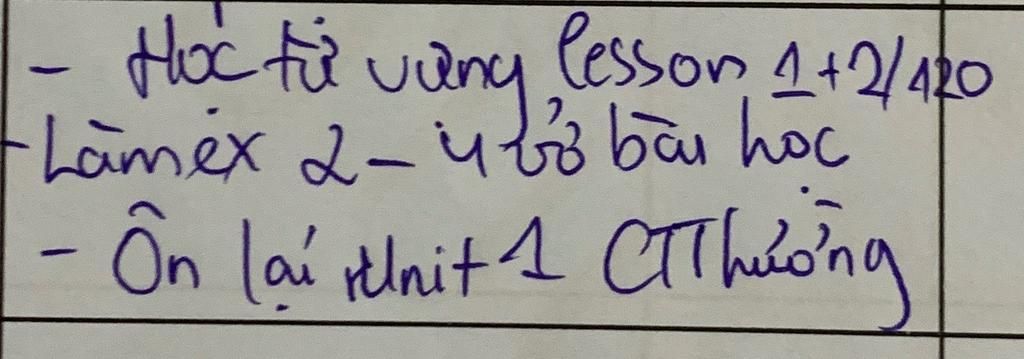 - Học từ vựng lesson 1+2/120
- Làm ex 2 - 4 vở bài học
- Ôn lại Unit 1 CT Thường